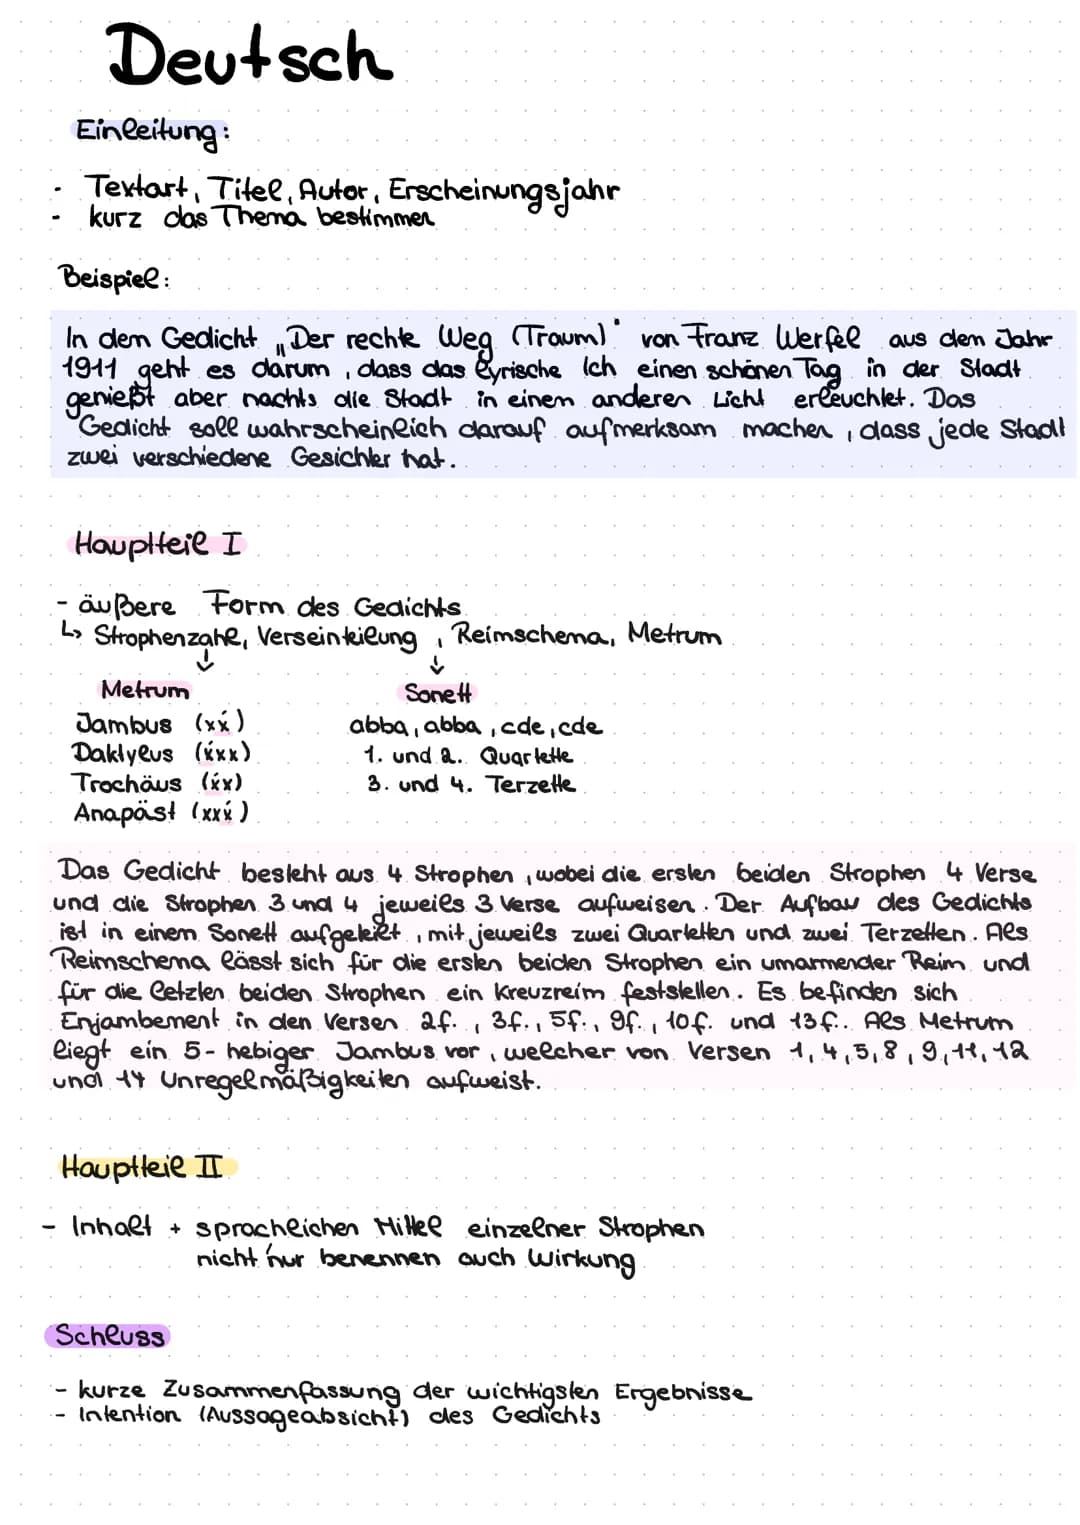 Deutsch
Einleitung:
- Textart, Titel, Autor, Erscheinungsjahr
- kurz das Thema bestimmen
Beispiel:
In dem Gedicht „Der rechte Weg (Traum)" von Franz Werfel aus dem Jahr
1911 geht es darum, dass das lyrische Ich einen schönen Tag in der Stadt
genießt aber nachts die Stadt in einem anderen Licht erleuchtet. Das
Gedicht soll wahrscheinlich darauf aufmerksam machen, dass jede Stadt
zwei verschiedene Gesichter hat.
Hauptteil I
- äußere Form des Gedichts
↳ Strophenzahl, Verseinteilung, Reimschema, Metrum
↓ ↓
Metrum Sonett
Jambus (xx́) abba, abba, cde, cde
Daktylus (x́xx) 1. und 2. Quartette
Trochäus (x́x) 3. und 4. Terzette
Anapäst (xxx́)
Das Gedicht besteht aus 4 Strophen, wobei die ersten beiden Strophen 4 Verse
und die Strophen 3 und 4 jeweils 3 Verse aufweisen. Der Aufbau des Gedichts
ist in einem Sonett aufgeteilt, mit jeweils zwei Quartetten und zwei Terzetten. Als
Reimschema lässt sich für die ersten beiden Strophen ein umarmender Reim und
für die letzten beiden Strophen ein Kreuzreim feststellen. Es befinden sich
Enjambement in den Versen 2f., 3f., 5f., 9f., 10f. und 13f.. Als Metrum
liegt ein 5-hebiger Jambus vor, welcher von Versen 1, 4, 5, 8, 9, 11, 12
und 14 Unregelmäßigkeiten aufweist.
Hauptteil II
- Inhalt + sprachlichen Mittel einzelner Strophen
nicht nur benennen auch Wirkung
Schluss
- kurze Zusammenfassung der wichtigsten Ergebnisse
- Intention (Aussageabsicht) des Gedichts